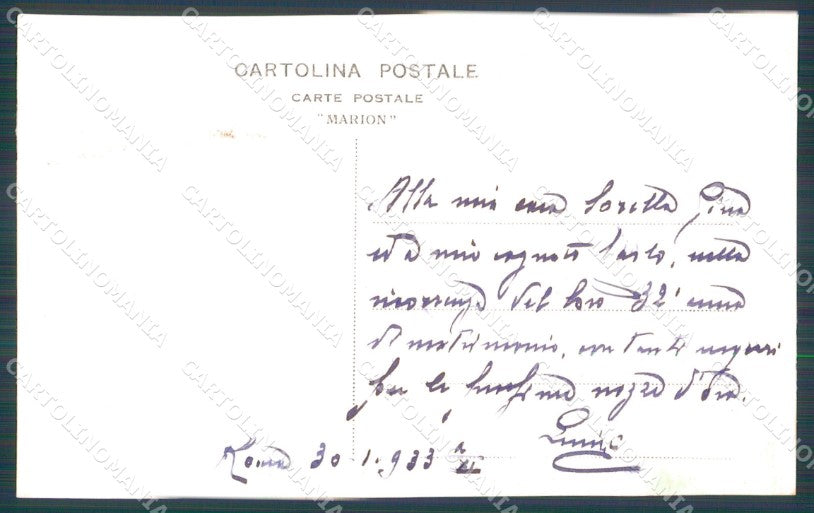 CARTOLINA POSTALE
CARTE POSTALE
"MARION"
Alla mia cara Sorella Gina
ed a mio cognato Carlo, nella
ricorrenza del loro 32° anno
di matrimonio, con tanti auguri
per le prossime nozze d'Oro.
Roma 30.1.933
CARTOLINOMANIA